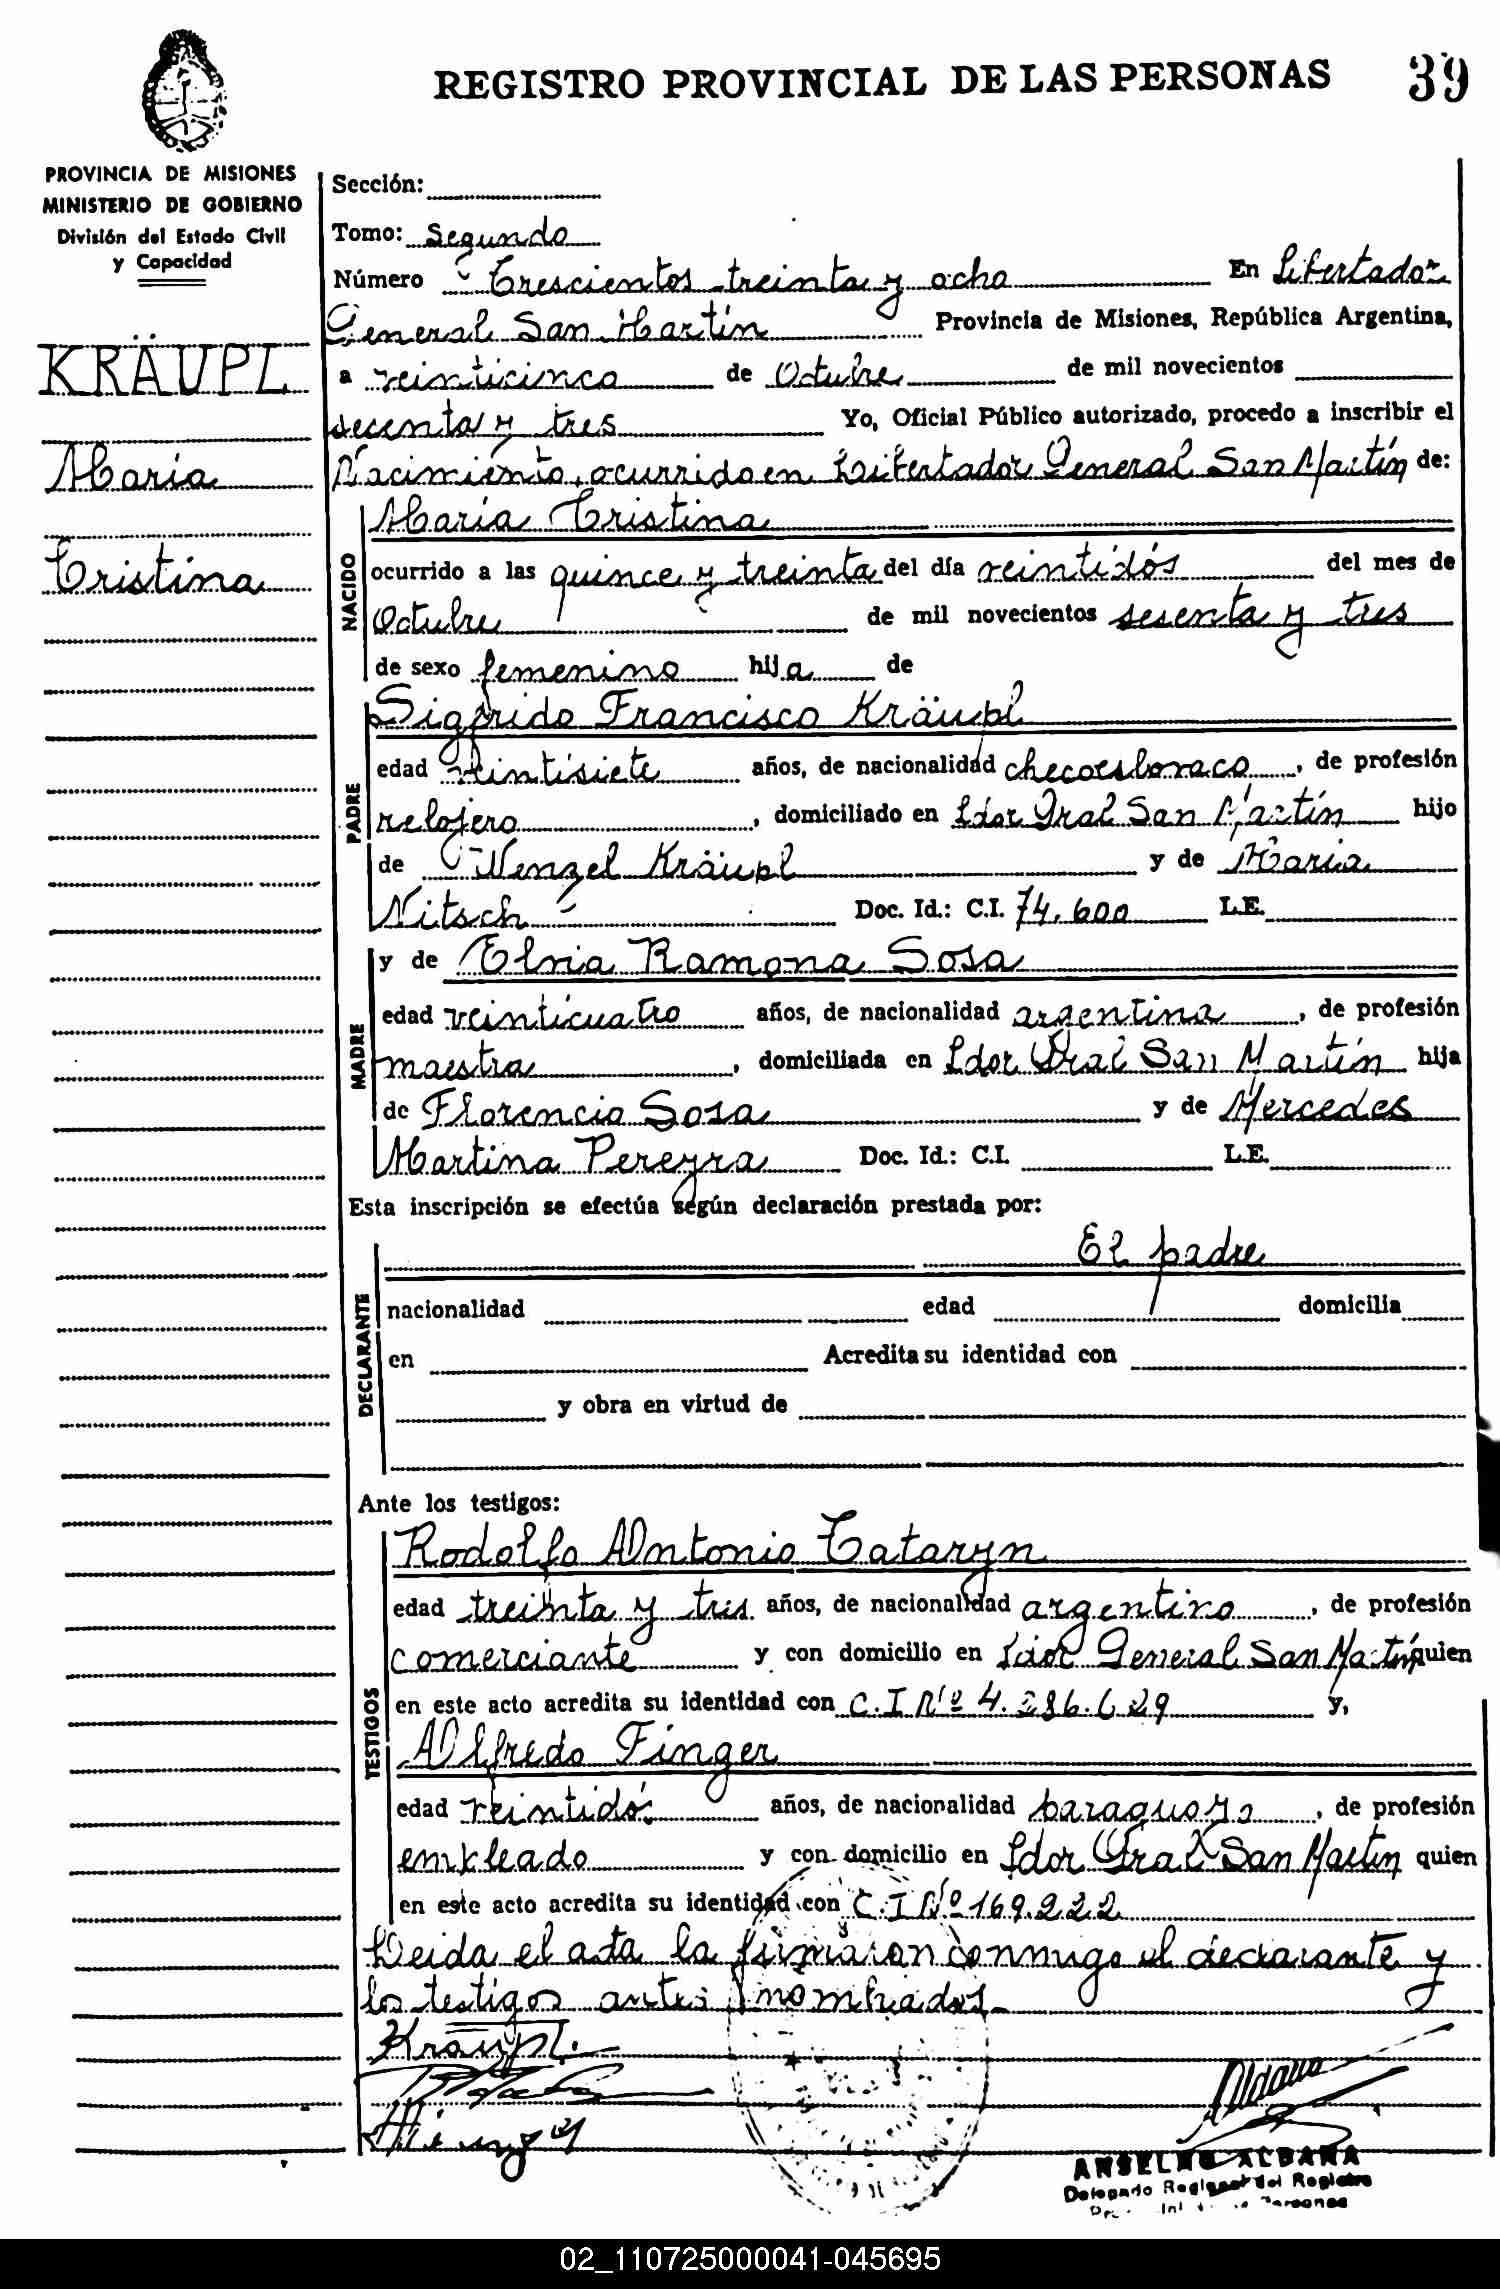 REGISTRO PROVINCIAL DE LAS PERSONAS 39
PROVINCIA DE MISIONES
MINISTERIO DE GOBIERNO
División del Estado Civil
y Capacidad
KRÄUPL
Maria
Cristina
Sección:
Tomo: Segundo
Número Trescientos treinta y ocho En Libertador
General San Martín Provincia de Misiones, República Argentina,
a veinticinco de Octubre de mil novecientos
secenta y tres Yo, Oficial Público autorizado, procedo a inscribir el
Nacimiento, ocurrido en Libertador General San Martín de:
NACIDO
María Cristina
ocurrido a las quince y treinta del día veintidós del mes de
Octubre de mil novecientos sesenta y tres
de sexo femenino hija de
PADRE
Sigfrido Francisco Kräupl
edad veintisiete años, de nacionalidad checoesloraco, de profesión
relojero, domiciliado en Ldor Gral San Martín hijo
de Wenzel Kräupl y de Maria
Nitsch Doc. Id.: C.I. 74.600 L.E.
MADRE
y de Elvia Ramona Sosa
edad veinticuatro años, de nacionalidad argentina, de profesión
maestra, domiciliada en Ldor Gral San Martín hija
de Florencio Sosa y de Mercedes
Martina Pereyra Doc. Id.: C.I. L.E.
Esta inscripción se efectúa según declaración prestada por:
DECLARANTE
El padre
nacionalidad edad domicilia
en Acredita su identidad con
y obra en virtud de
Ante los testigos:
TESTIGOS
Rodolfo Antonio Tataryn
edad treinta y tres años, de nacionalidad argentino, de profesión
comerciante y con domicilio en Ldor General San Martín quien
en este acto acredita su identidad con C.I Nº 4.286.629 y,
Alfredo Finger
edad veintidós años, de nacionalidad paraguayo, de profesión
empleado y con domicilio en Ldor Gral San Martín quien
en este acto acredita su identidad con C.I Nº 169.222
Leida el acta la firmaron conmigo el declarante y
los testigos antes nombrados.
Kräupl.
Aldana
ANSELMO ALDANA
Delegado Regional del Registro
Personas
02_110725000041-045695